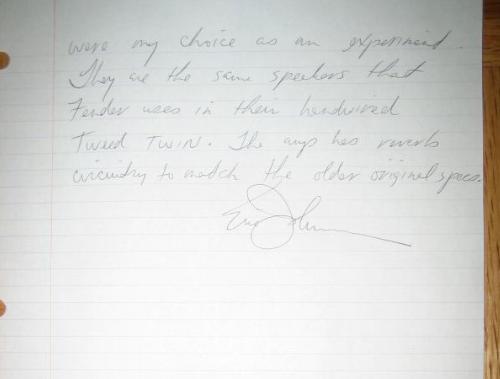 were my choice as an experiment.
They are the same speakers that
Fender uses in their handwired
Tweed TWIN. The amp has reverb
circuitry to match the older original specs.
Eric Johnson